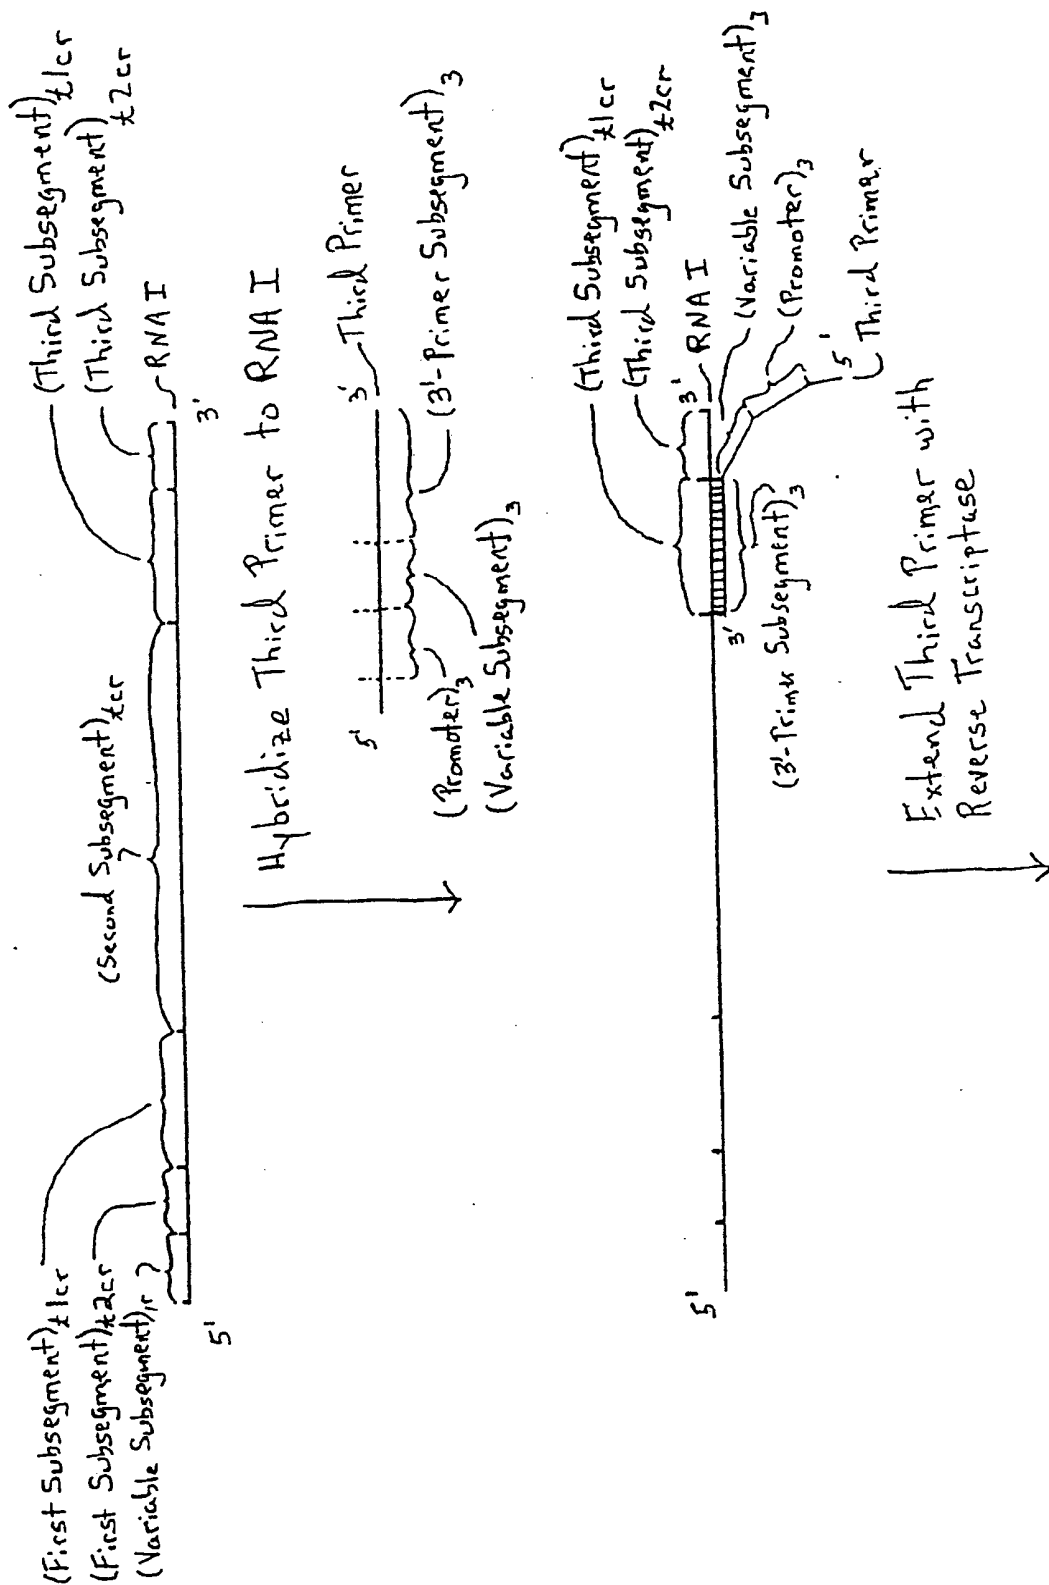 (First Subsegment)t1cr
(First Subsegment)t2cr
(Variable Subsegment)1r
(Second Subsegment)tcr
(Third Subsegment)t1cr
(Third Subsegment)t2cr
RNA I
5'
3'
Hybridize Third Primer to RNA I
5'
3'
Third Primer
(Promoter)3
(Variable Subsegment)3
(3'-Primer Subsegment)3
(Third Subsegment)t1cr
(Third Subsegment)t2cr
RNA I
5'
3'
(Variable Subsegment)3
(Promoter)3
3'
5'
Third Primer
(3'-Primer Subsegment)3
Extend Third Primer with
Reverse Transcriptase